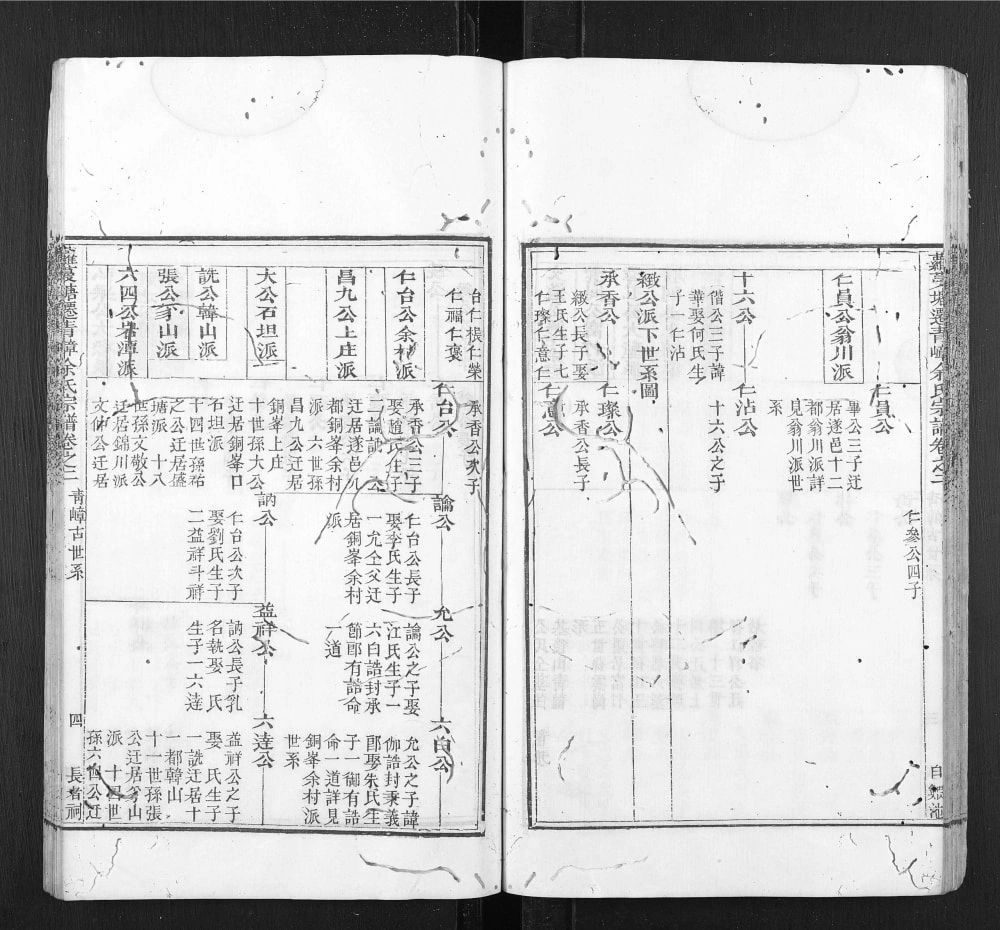 仁參公四子
仁員公翁川派
仁員公
畢公三子迁
居遂邑十二
都翁川派詳
見翁川派世
系
十六公
僭公三子諱
華娶何氏生
子一仁沾
仁沾公
十六公之子
緻公派下世系圖
承香公
緻公長子娶
王氏生子七
仁璨仁意仁
仁璨公
承香公長子
台仁根仁榮
仁福仁褒
承香公次子
仁台公余村派
仁台公
承香公三子
娶趙氏生子
二論訥
迁居遂邑九
都銅峯余村
派
論公
仁台公長子
娶李氏生子
一允仝父迁
居銅峯余村
派
允公
論公之子娶
江氏生子一
六白誥封承
節郎有誥命
一道
六白公
允公之子諱
伽誥封秉義
郎娶朱氏生
子一御有誥
命一道詳見
銅峯余村派
世系
昌九公上庄派
六世孫
昌九公迁居
銅峯上庄
大公石坦派
十世孫大公
迁居銅峯口
石坦派
訥公
仁台公次子
娶劉氏生子
二益祥斗祥
益祥公
訥公長子乳
名執娶 氏
生子一六逹
六逹公
益祥公之子
娶 氏生子
一詵迁居十
一都韓山
詵公韓山派
張公㝊山派
六四公塔潭派
十四世孫祐
之公迁居盛
塘派 十八
世孫文敬公
迁居錦川派
文仲公迁居
十一世孫張
公迁居㝊山
派 十四世
孫六四公迁
青嶂古世系
四
長者祠